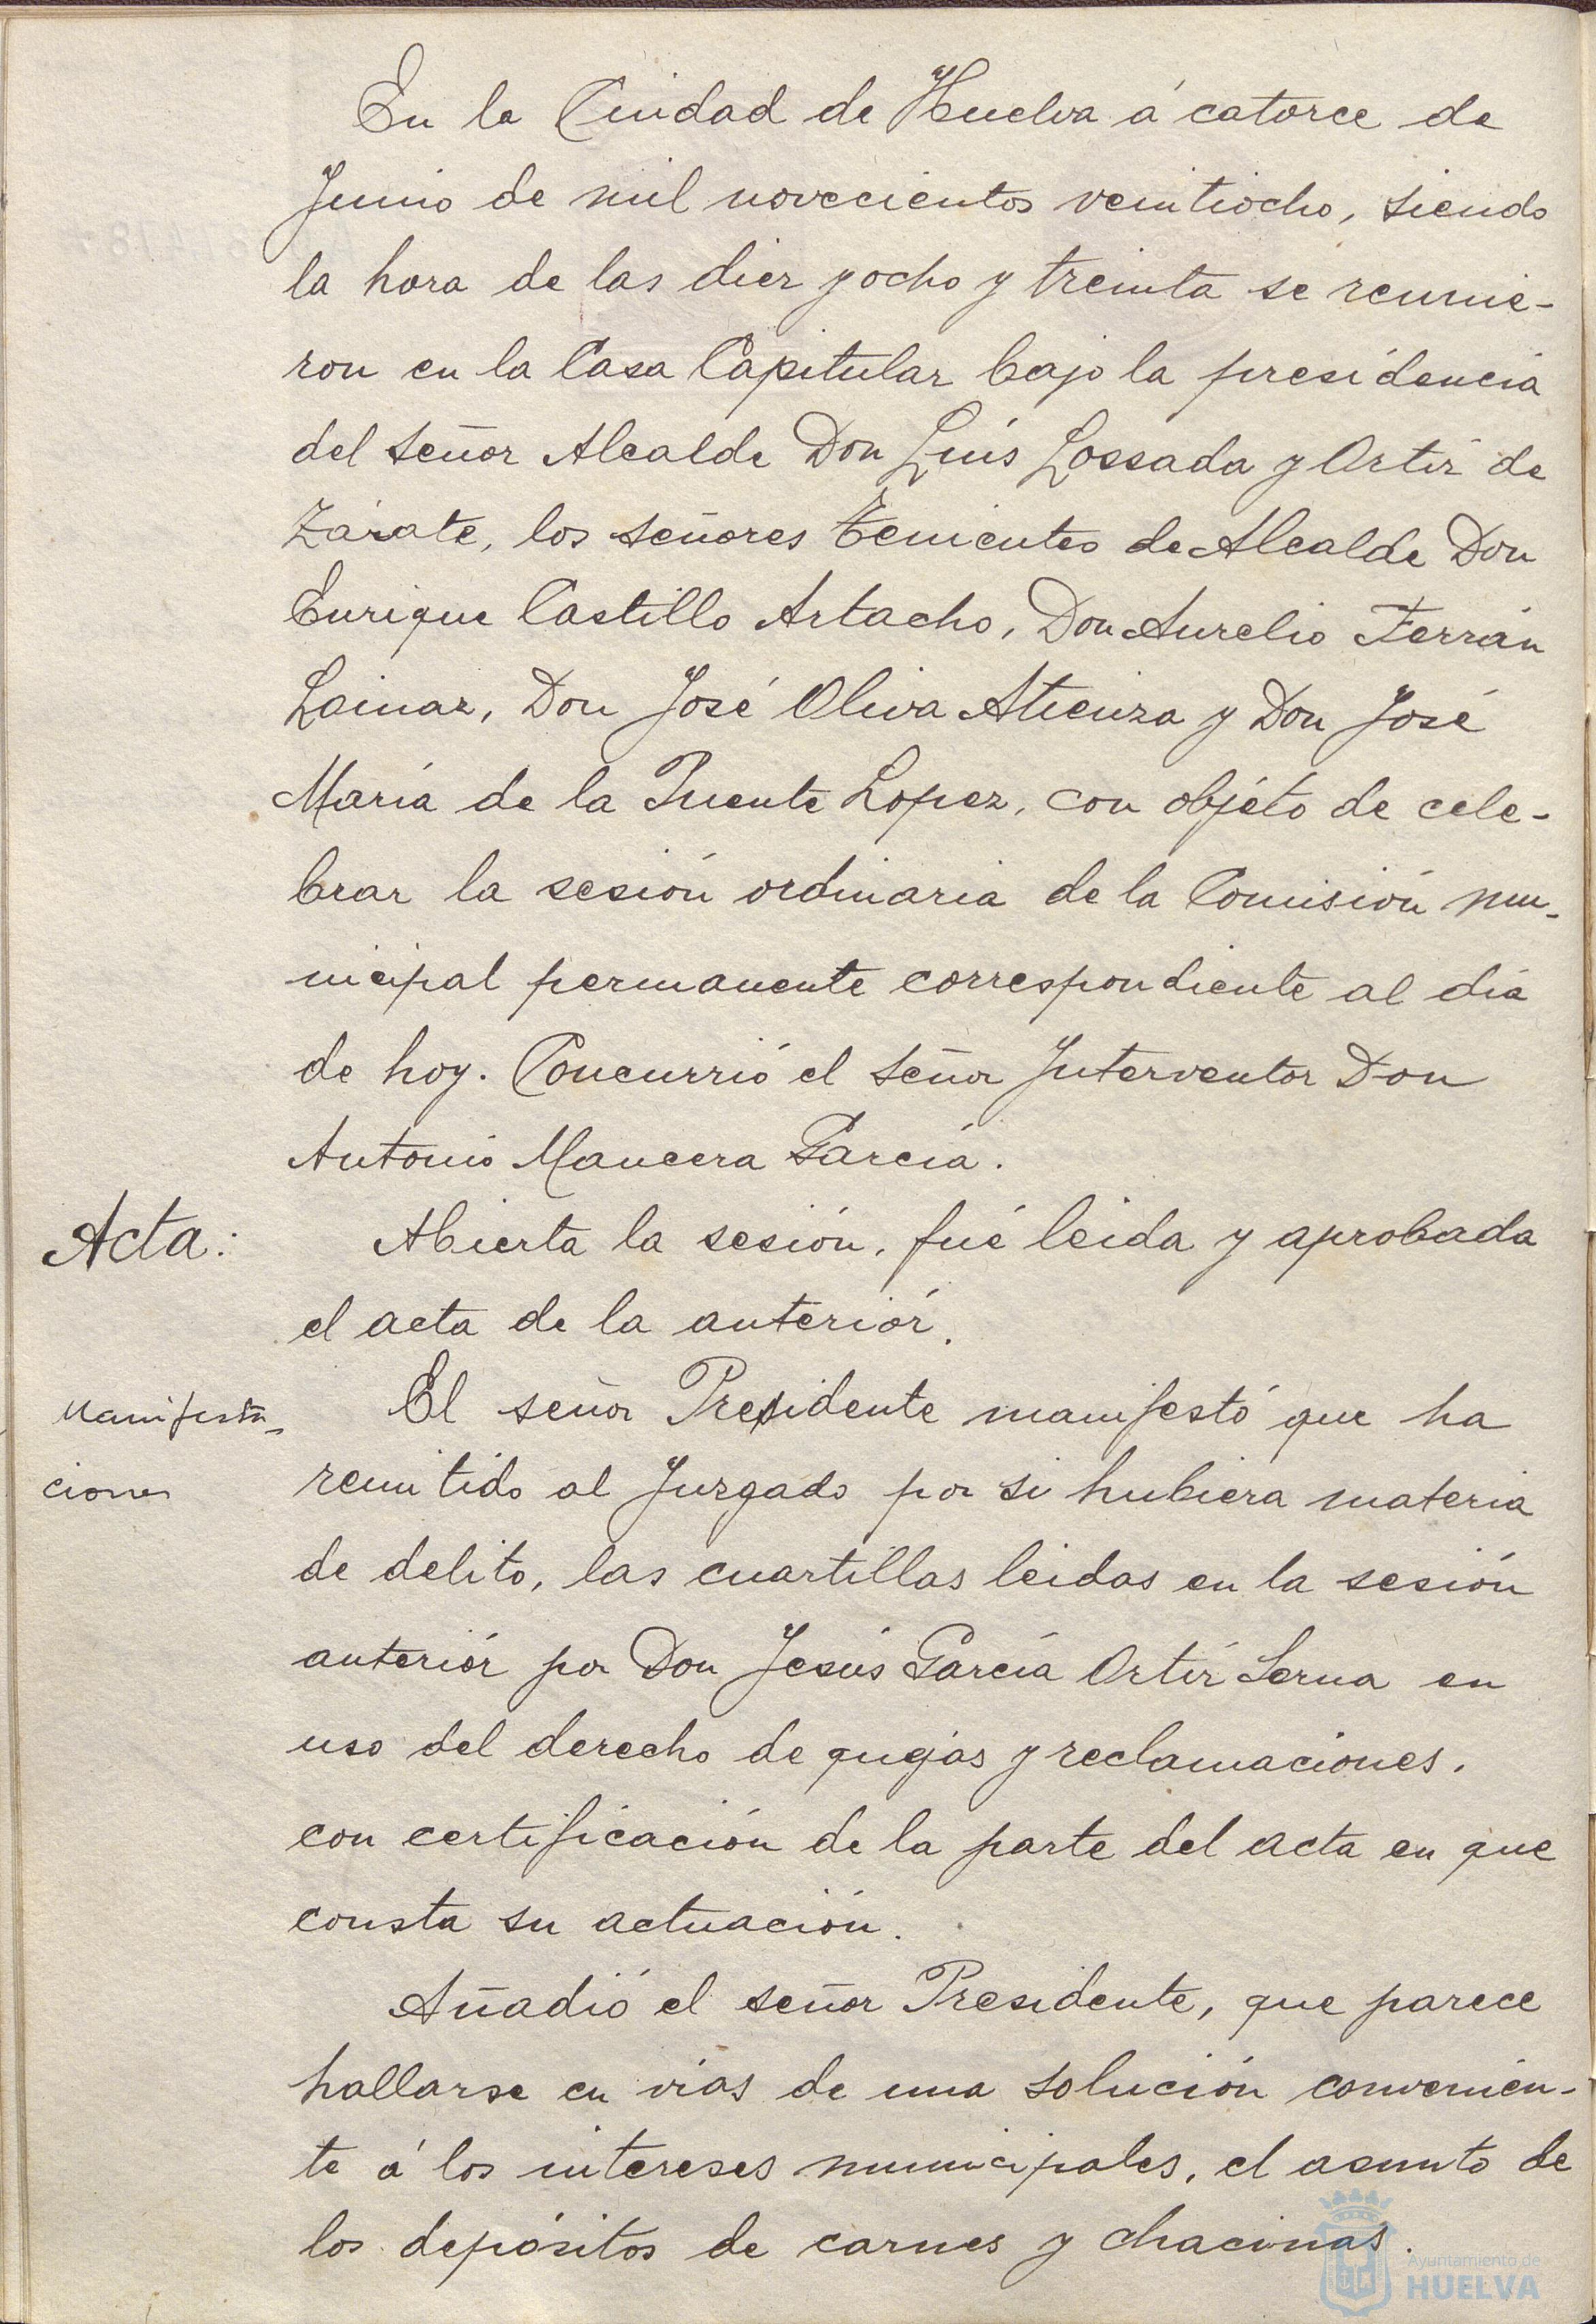 En la Ciudad de Huelva á catorce de
Junio de mil novecientos veintiocho, siendo
la hora de las diez y ocho y treinta se reunie-
ron en la Casa Capitular bajo la presidencia
del señor Alcalde Don Luís Lossada y Ortíz de
Zárate, los señores tenientes de Alcalde Don
Enrique Castillo Artacho, Don Aurelio Ferrán
Lainaz, Don José Oliva Atienza y Don José
María de la Puente Lopez, con objéto de cele-
brar la sesión ordinaria de la Comisión mu-
nicipal permanente correspondiente al día
de hoy. Concurrió el señor Interventor Don
Antonio Mancera García.
Acta: Abierta la sesión, fué leida y aprobada
el acta de la anteriór.
Manifesta- El señor Presidente manifestó que ha
ciones remitido al Juzgado por si hubiera materia
de delito, las cuartillas leidas en la sesión
anteriór por Don Jesús García Ortíz Serna en
uso del derecho de quejas y reclamaciones,
con certificación de la parte del acta en que
consta su actuación.
Añadió el señor Presidente, que parece
hallarse en vías de una solución convenien-
te á los intereses municipales, el asunto de
los depósitos de carnes y chacinas.
Ayuntamiento de
HUELVA